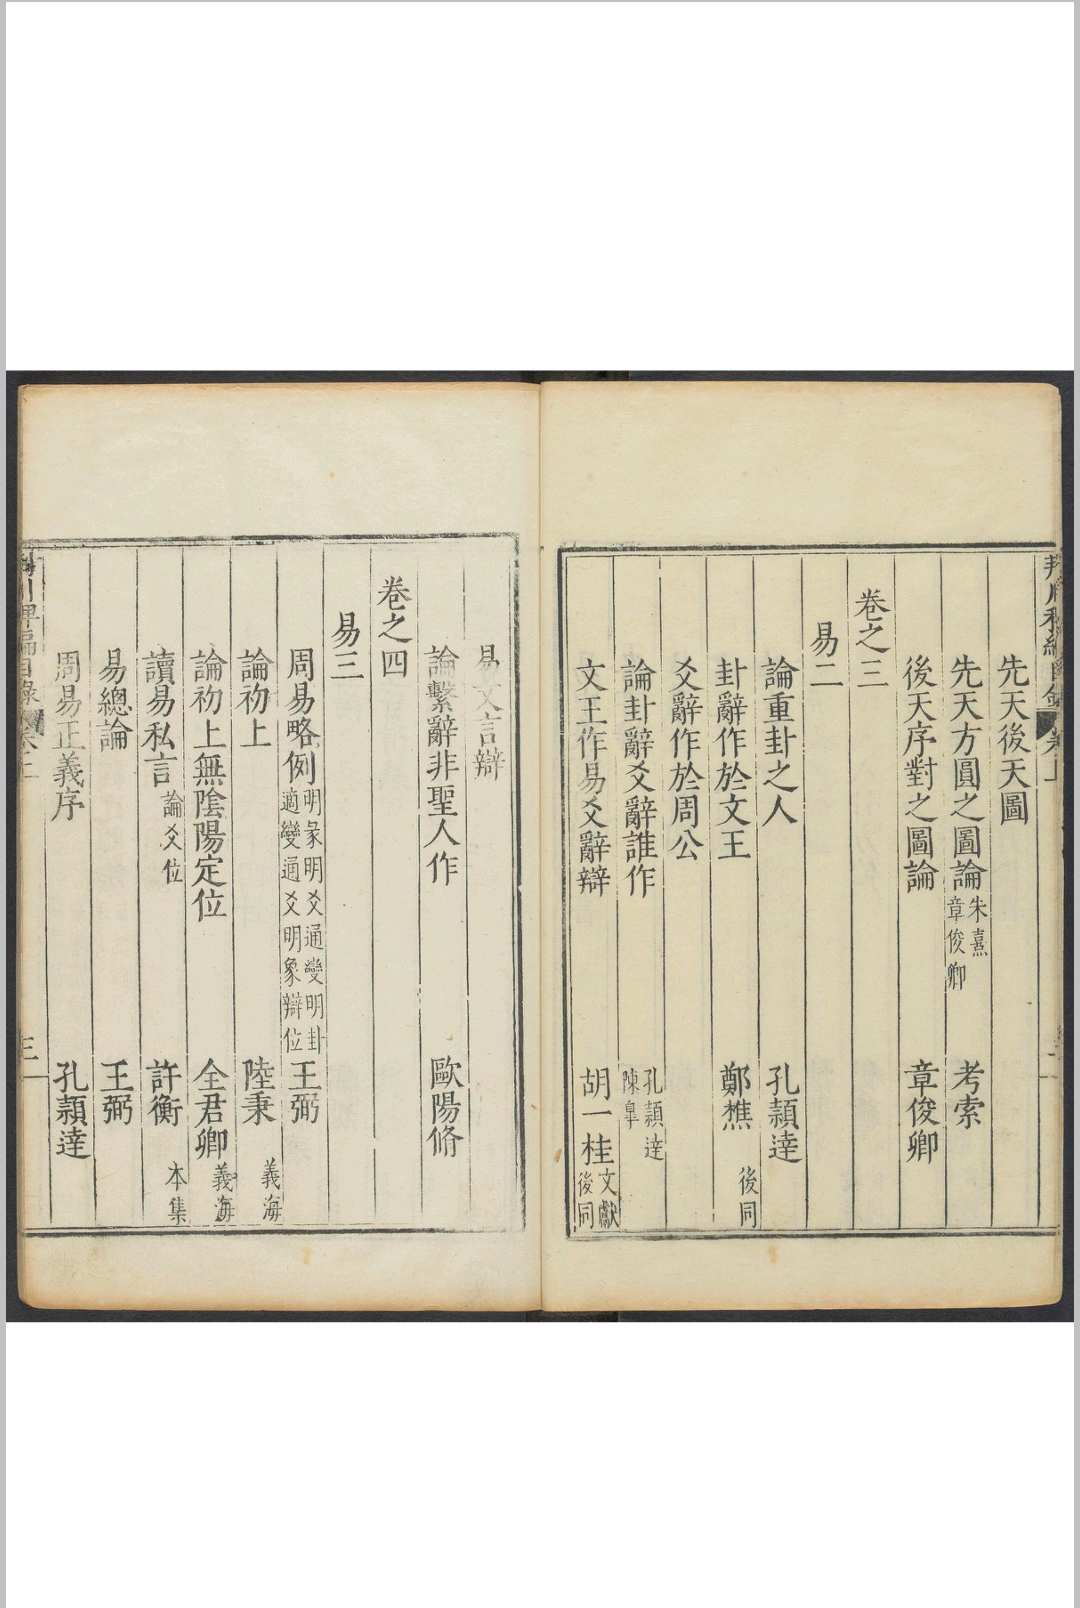 先天後天圖
先天方圓之圖論 朱熹 章俊卿 考索
後天序對之圖論 章俊卿
卷之三
易二
論重卦之人 孔穎達
卦辭作於文王 鄭樵 後同
爻辭作於周公
論卦辭爻辭誰作 孔穎達 陳臯
文王作易爻辭辯 胡一桂 文獻 後同
易文言辯
論繫辭非聖人作 歐陽脩
卷之四
易三
周易略例 明彖明爻通變明卦 適變通爻明象辯位 王弼
論初上 陸秉 義海
論初上無陰陽定位 全君卿 義海
讀易私言 論爻位 許衡 本集
易總論 王弼
周易正義序 孔穎達
三